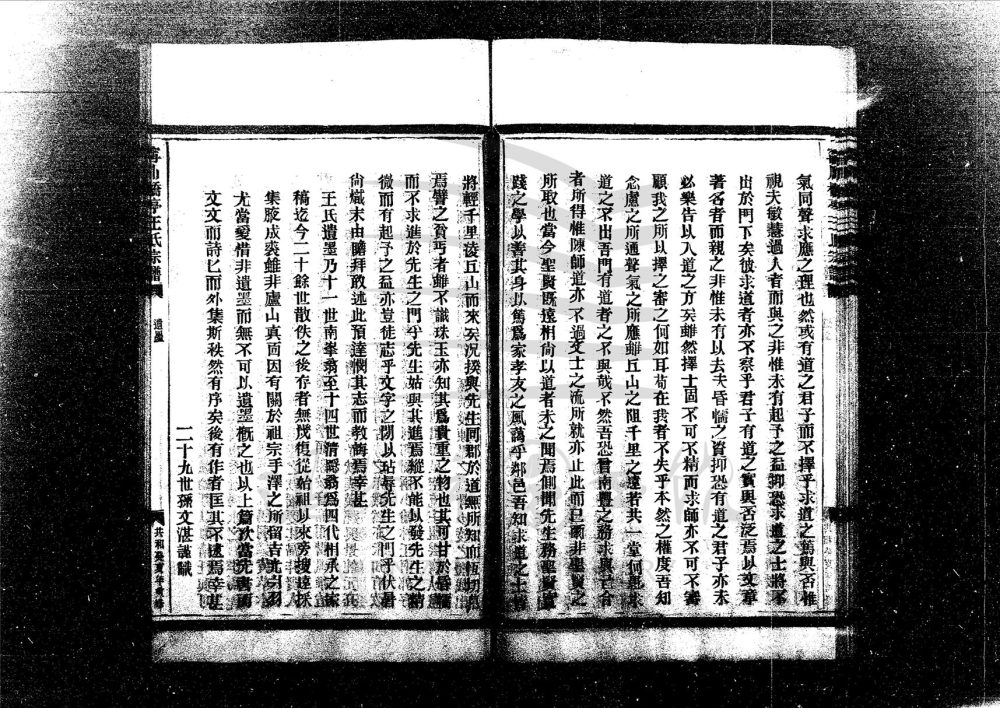 氣同聲求應之理也然或有道之君子而不擇乎求道之篤與否惟
視夫敏慧過人者而與之非惟未有起予之益抑恐求道之士將不
出於門下矣彼求道者亦不察乎君子有道之實與否泛焉以文章
著名者而親之非惟未有以去夫昏惰之資抑恐有道之君子亦未
必樂告以入道之方矣雖然擇士固不可不精而求師亦不可不審
顧我之所以擇之審之何如耳苟在我者不失乎本然之權度吾知
念慮之所通聲氣之所應雖丘山之阻千里之遠若共一堂何
道之不出吾門有道者之不與哉不然吾恐
者所得惟陳師道亦不過文士之流所就亦止此而已爾非聖賢之
所取也當今聖賢既遠相尚以道者未之聞焉側聞先生務聖賢實
踐之學以善其身以篤爲家孝友之風藹乎鄰邑吾知求道之士
將輕千里陵丘山而來矣況揆與先生同郡於道無所知而恆切
焉譬之貧丐者雖不識珠玉亦知其爲貴重之物也其可甘於
而不求進於先生之門乎先生姑與其進焉縱不能以發先生之
微而有起予之益亦豈徒志乎文字之間以玷辱先生之門乎伏暑
尚熾未由瞻拜敢述此預達憫其志而教誨焉幸甚
王氏遺墨乃十一世南峯翁至十四世清爵翁爲四代相承之
稿迄今二十餘世散佚之後存者無幾復從始祖以來旁搜遠採
集腋成裘雖非廬山真面因有關於祖宗手澤之所留吉光
尤當愛惜非遺墨而無不可以遺墨概之也以上篇
文文而詩已而外集斯秩然有序矣後有作者匡其不逮焉幸甚
二十九世孫文湛謹識
橋亭王氏宗譜
遺墨